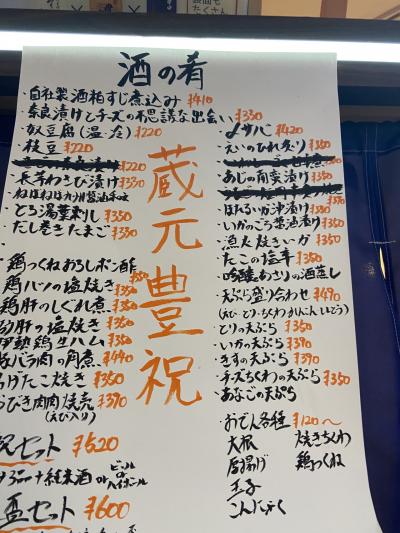 酒の肴
・自社製酒粕すじ煮込み ¥410
奈良漬けとチーズの不思議な出会い ¥330
・奴豆腐(温・冷) ¥220
・枝豆 ¥220
¥220
・長芋わさび漬け ¥330
ねばねば九州醤油味
・とろ湯葉刺し ¥350
・だし巻きたまご ¥350
鶏つくねおろしポン酢
鶏ハツの塩焼き ¥350
鶏肝のしぐれ煮 ¥350
砂肝の塩焼き ¥350
伊勢鶏生ハム ¥350
豚バラ肉の角煮 ¥490
たこ焼き ¥350
¥390
(えび入り)
セット ¥520
純米酒
ビール
or
ハイボール
セット ¥600
蔵元豊祝
・〆サバ ¥420
・えいのひれ炙り ¥350
・あじの南蛮漬け ¥350
・ほたるいか沖漬け ¥350
・いかのごろ醤油漬け ¥350
・漁火焼きいか ¥350
・たこの塩辛 ¥350
・吟醸あさりの酒蒸し ¥350
・天ぷら盛り合わせ ¥490
・とりの天ぷら ¥350
・いかの天ぷら ¥390
・きすの天ぷら ¥390
・チーズちくわの天ぷら ¥350
・あなごの天ぷら
・おでん各種 ¥120〜
大根 焼きちくわ
厚揚げ 鶏つくね
玉子
こんにゃく